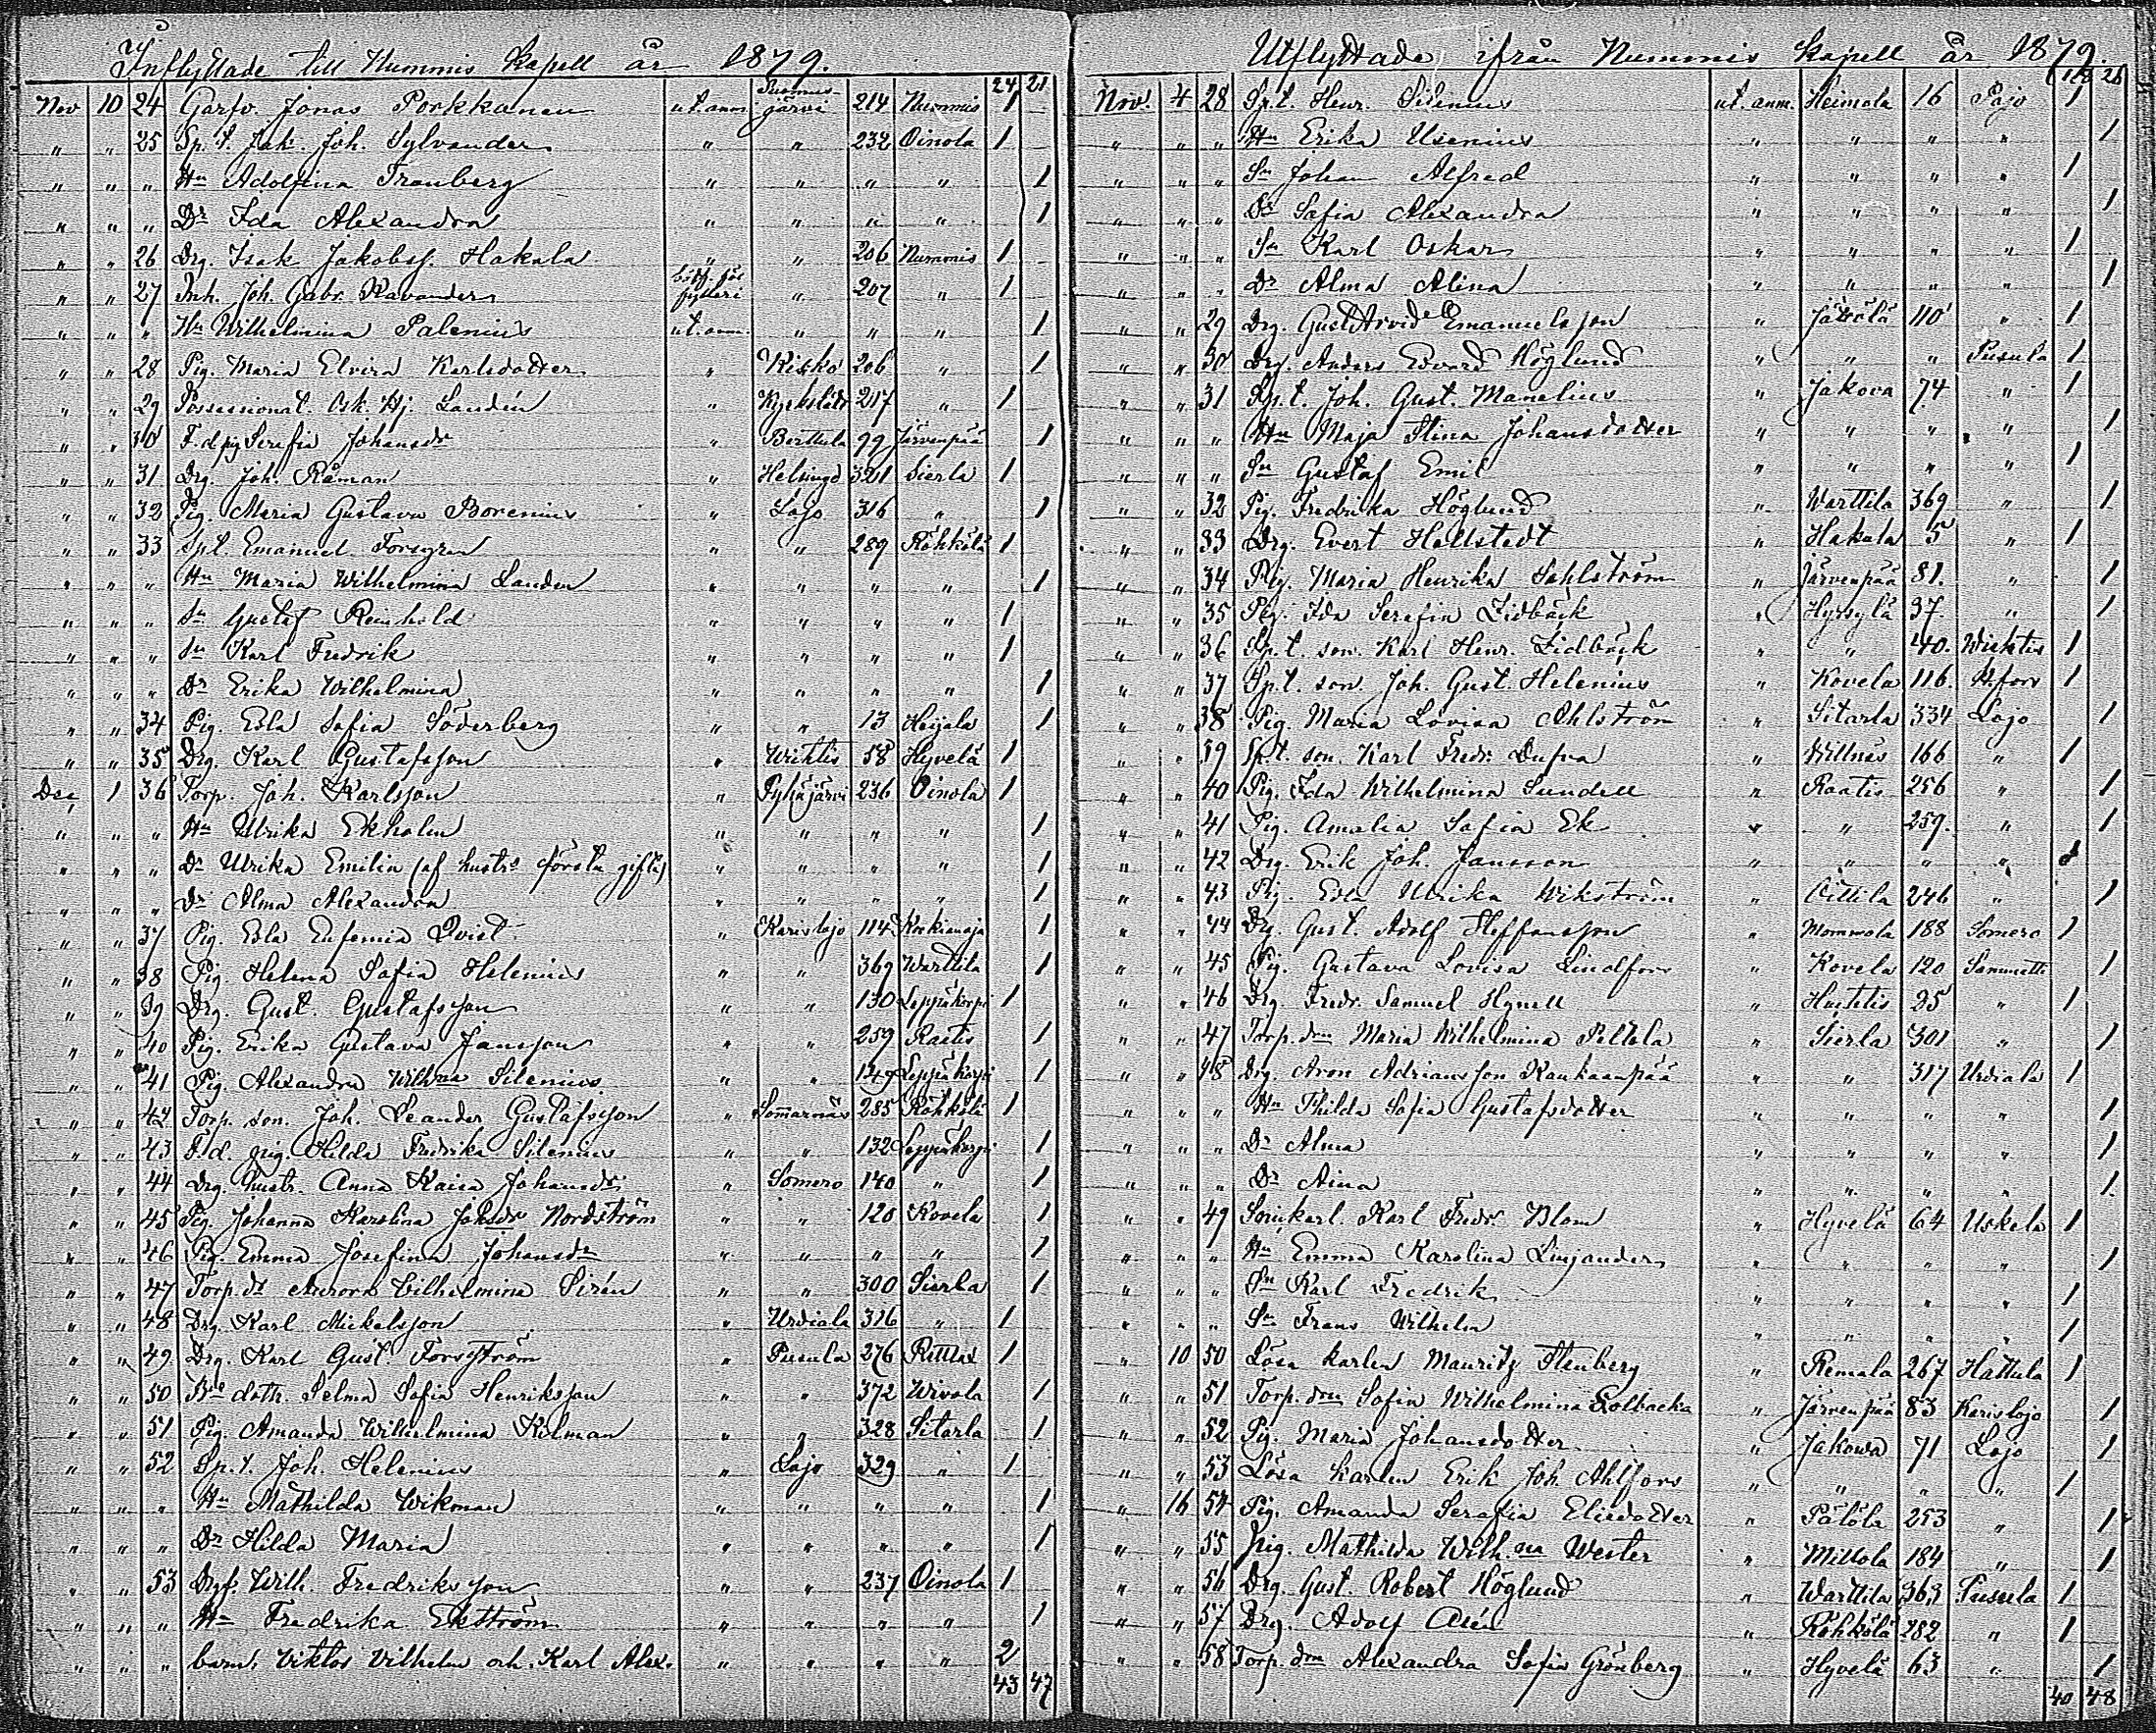 Inflyttade till Nummis Kapell år 1879.
24 21
Nov 10 24 Garfv. Jonas Porkkanen ut. anm. Suomusjärvi 214 Nummis 1
" " 25 Sp. t. Jak. Joh. Sylvander " " 232 Oinola 1
" " " Hu Adolfina Tranberg " " " " 1
" " " Dr Ida Alexandra " " " " 1
" " 26 Drg. Isak Jakobsf. Hakala " " 206 Nummis 1
" " 27 Inh. Joh. Gabr. Ravander " 207 " 1
" " " Hu Wilhelmina Palenius ut. anm. " " " 1
" " 28 Pig. Maria Elvira Karlsdotter " Kisko 206 " 1
" " 29 Possessionat. Osk. Hj. Landén " Kyrkslätt 217 " 1
" " 30 F. d. pig Serafia Johansdr " Berttula 99 Järvenpää 1
" " 31 Drg. Joh. Råman " Helsinge 321 Sierla 1
" " 32 Pig. Maria Gustava Borenius " Lojo 316 " 1
" " 33 Spt. Emanuel Forsgren " " 289 Röhkölä 1
" " " Hu Maria Wilhelmina Landen " " " " 1
" " " Sn Gustaf Reinhold " " " " 1
" " " Sn Karl Fredrik " " " " 1
" " " Dr Erika Wilhelmina " " " " 1
" " 34 Pig. Edla Sofia Söderberg " " 13 Heijala 1
" " 35 Drg. Karl Gustafsson " Wichtis 58 Hyvelä 1
Dec 1 36 Torp. Joh. Karlsson " Pyhäjärvi 236 Oinola 1
" " " Hu Ulrika Ekholm " " " " 1
" " " Dr Ulrika Emilia (af hustrs första gifte) " " " " 1
" " " Dr Alma Alexandra " " " " 1
" " 37 Pig. Edla Eufemia Qvist " Karislojo 114 1
" " 38 Pig. Helena Sofia Helenius " " 369 Warttila 1
" " 39 Drg. Gust. Gustafsson " " 130 Leppäkorpi 1
" " 40 Pig. Erika Gustava Jansson " " 259 Raatis 1
" " 41 Pig. Alexandra Wilhna Silenius " " 149 Leppäkorpi 1
" " 42 Torp. son. Joh. Leander Gustafsson " Somarnäs 285 Röhkölä 1
" " 43 F. d. pig. Hilda Fredrika Silenius " " 132 Leppäkorpi 1
" " 44 Drg. hustr. Anna Kaisa Johansdr " Somero 140 " 1
" " 45 Pig. Johanna Karolina Johsdr Nordström " " 120 Kovela 1
" " 46 Pig. Emma Josefina Johansdr " " " " 1
" " 47 Torp. dr Aurora Vilhelmina Sirén " " 300 Sierla 1
" " 48 Drg. Karl Mickelsson " Urdiala 316 " 1
" " 49 Drg. Karl Gust. Forsström " Pusula 276 Rittlax 1
" " 50 Bde doth. Selma Sofia Henriksson " " 372 Wivola 1
" " 51 Pig. Amanda Wilhelmina Kilman " " 328 Sitarla 1
" " 52 Sp. t. Joh. Helenius " Lojo 329 " 1
" " " Hu Mathilda Wikman " " " " 1
" " " Dr Hilda Maria " " " " 1
" " 53 Drg. Wilh. Fredriksson " " 237 Oinola 1
" " " Hu Fredrika Ekström " " " " 1
" " " barn: Viktor Vilhelm och Karl Alex. " " " " 2
43 47
Utflyttade ifrån Nummis Kapell år 1879.
Nov. 4 28 Sp. t. Henr. Silenius ut. anm. Heimola 16 Lojo 1
" " " Hu Erika Usenius " " " " 1
" " " Sn Johan Alfred " " " " 1
" " " Dr Sofia Alexandra " " " " 1
" " " Sn Karl Oskar " " " " 1
" " " Dr Alma Alina " " " " 1
" " 29 Drg. Gust. Arvid Emanuelsson " Jätölä 110 " 1
" " 30 Drg. Anders Edvard Höglund " " " Pusula 1
" " 31 Sp. t. Joh. Gust. Manelius " Jakova 74 " 1
" " " Hu Maja Stina Johansdotter " " " " 1
" " " Sn Gustaf Emil " " " " 1
" " 32 Pig. Fredrika Höglund " Warttila 369 " 1
" " 33 Drg. Evert Hellstedt " Hakula 5 " 1
" " 34 Pig. Maria Henrika Sahlström " Järvenpää 81. " 1
" " 35 Pig. Ida Serafia Lidbäck " Hyrsylä 37. " 1
" " 36 Sp. t. son. Karl Henr. Lidbäck " " 40. Wichtis 1
" " 37 Sp. t. son. Joh. Gust. Helenius " Kovela 116. H.fors 1
" " 38 Pig. Maria Lovisa Ahlström " Sitarla 334 Lojo 1
" " 39 Sp. t. son. Karl Fredr. Dufva " Willnäs 166 " 1
" " 40 Pig. Ida Wilhelmina Sundell " Raatis 256 " 1
" " 41 Pig. Amalia Sofia Ek " " 259. " 1
" " 42 Drg. Erik Joh. Jansson " " " " 1
" " 43 Pig. Edla Ulrika Wikström " Ottila 246 " 1
" " 44 Drg. Gust. Adolf Steffansson " Mommola 188 Somero 1
" " 45 Pig. Gustava Lovisa Lindfors " Kovela 120 Sammatti 1
" " 46 Drg. Fredr. Samuel Hynell " Huhtis 25 " 1
" " 47 Torp. dm Maria Wilhelmina Peltola " Sierla 301 " 1
" " 48 Drg. Aron Adriansson Kankaanpää " " 317 Urdiala 1
" " " Hu Thilda Sofia Gustafsdotter " " " " 1
" " " Dr Alma " " " " 1
" " " Dr Aina " " " " 1
" " 49 Karl Fredr. Blom " Hyvelä 64 Uskela 1
" " " Hu Emma Karolina Linjander " " " " 1
" " " Sn Karl Fredrik " " " " 1
" " " Sn Frans Wilhelm " " " " 1
" 10 50 Lösa karlen Mauritz Stenberg " Remala 267 Hattula 1
" " 51 Torp. dm Sofia Wilhelmina Rolbacka " Järvenpää 83 Karislojo 1
" " 52 Pig. Maria Johansdotter " Jakova 71 Lojo 1
" " 53 Lösa karlen Erik Joh. Ahlfors " " " " 1
" 16 54 Pig. Amanda Serafia Eliedotter " Pälölä 253 " 1
" " 55 Pig. Mathilda Wilh.na Wester " Millola 184 " 1
" " 56 Drg. Gust. Robert Höglund " Warttila 363 Pusula 1
" " 57 Drg. Adolf Alén " Röhkölä 282 " 1
" " 58 Torp. dm Alexandra Sofia Grönberg " Hyvelä 63 " 1
40 48